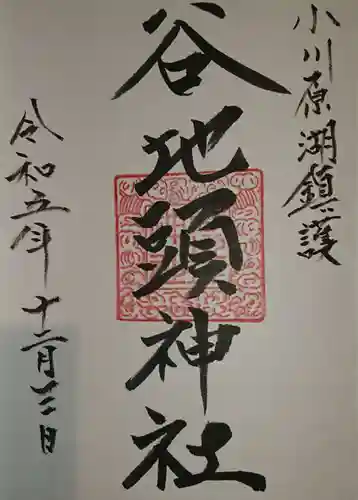 小川原湖鎮護
谷地頭神社
令和五年 十二月三日